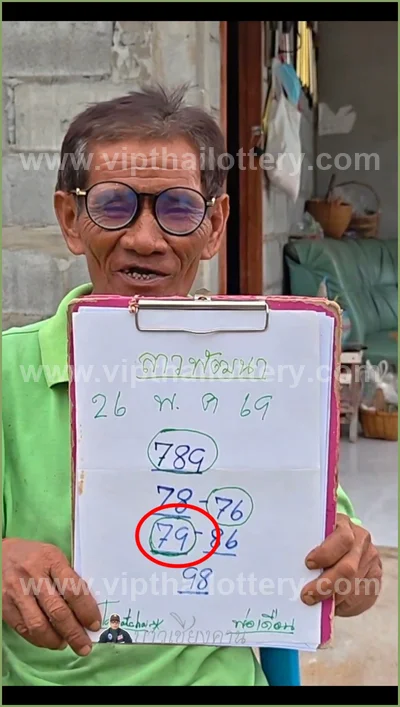 www.vipthailottery.com
ลาวพัฒนา
www.vipthailottery.com
26 พ. ค 69
789
78 - 76
79 - 86
www.vipthailottery.com
98
พ่อเดือน